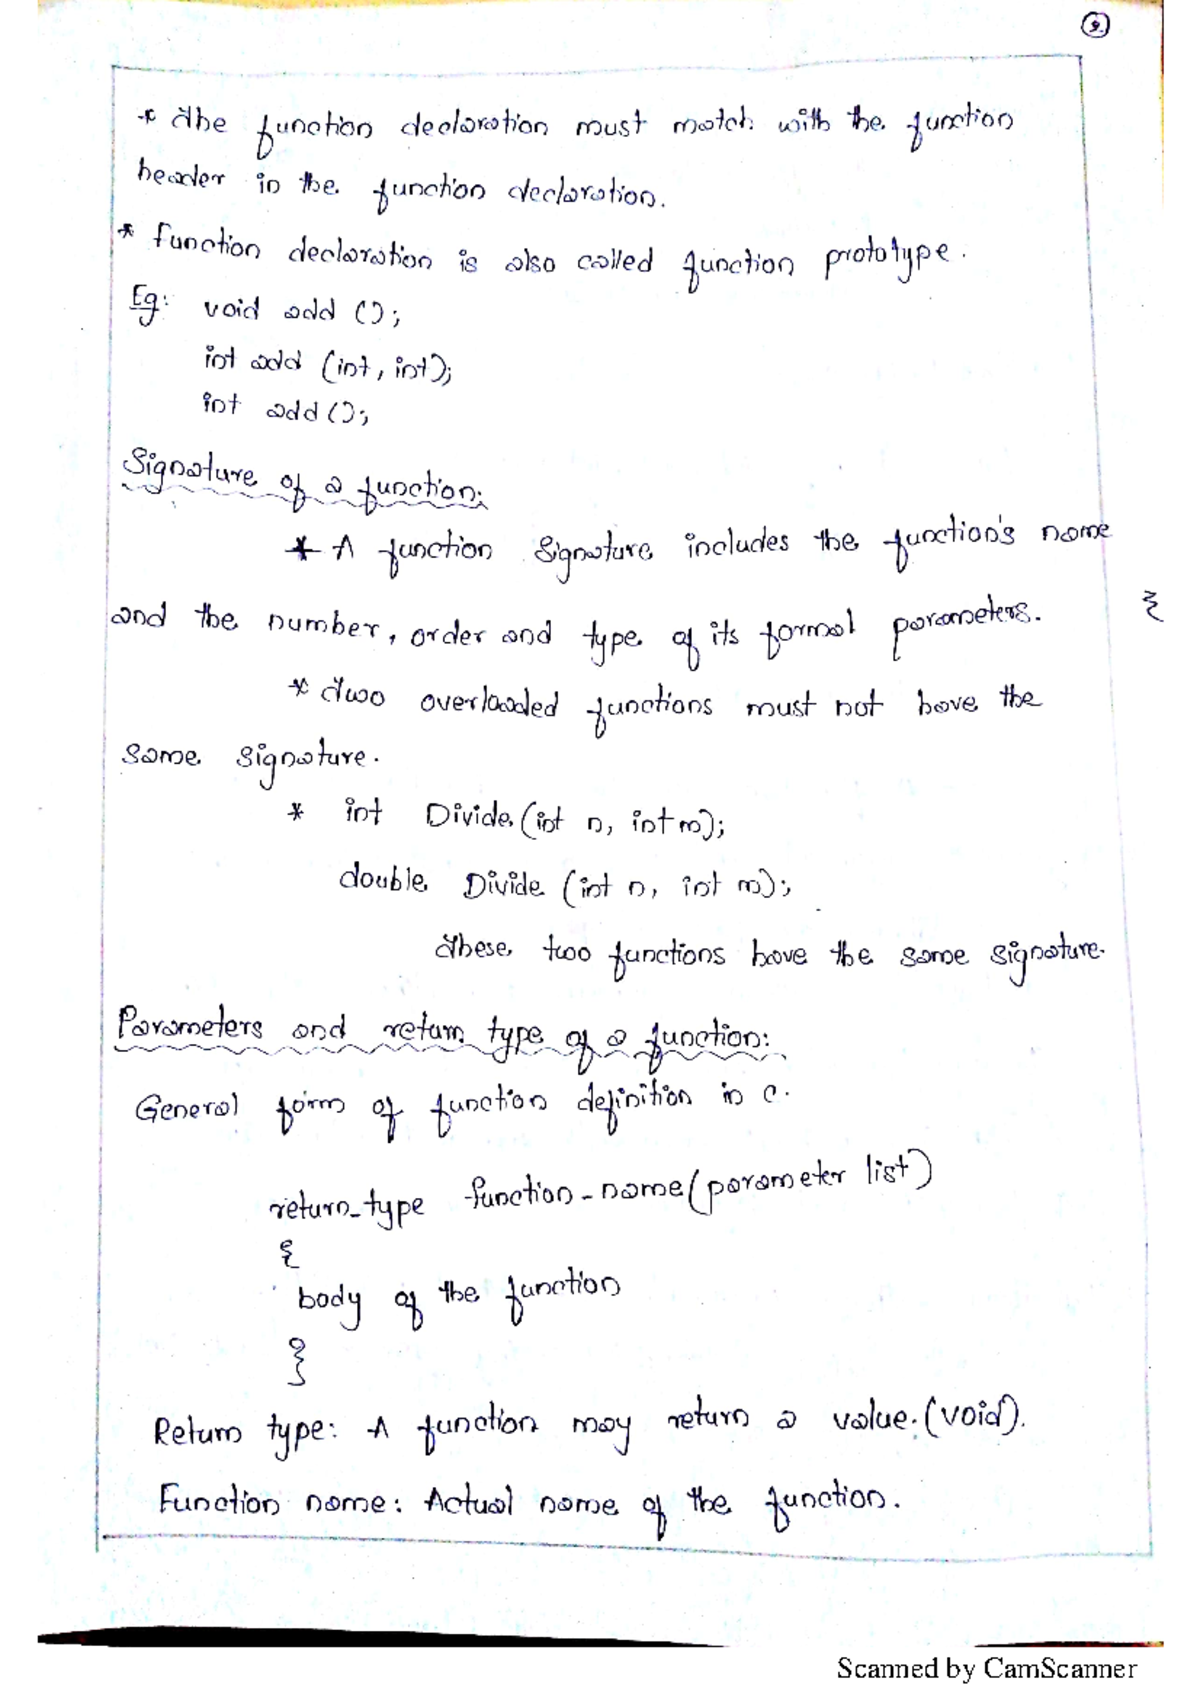 9.
* The function declaration must match with the function
header in the function declaration.
* Function declaration is also called function prototype.
Eg: void add ();
int add (int, int);
int add ();
Signature of a function:
* A function signature includes the function's name
and the number, order and type of its formal parameters.
* Two overloaded functions must not have the
same signature.
* int Divide (int n, int m);
double Divide (int n, int m);
These two functions have the same signature.
Parameters and return type of a function:
General form of function definition in c.
return_type function-name (parameter list)
{
body of the function
}
Return type: A function may return a value. (void).
Function name: Actual name of the function.
Scanned by CamScanner